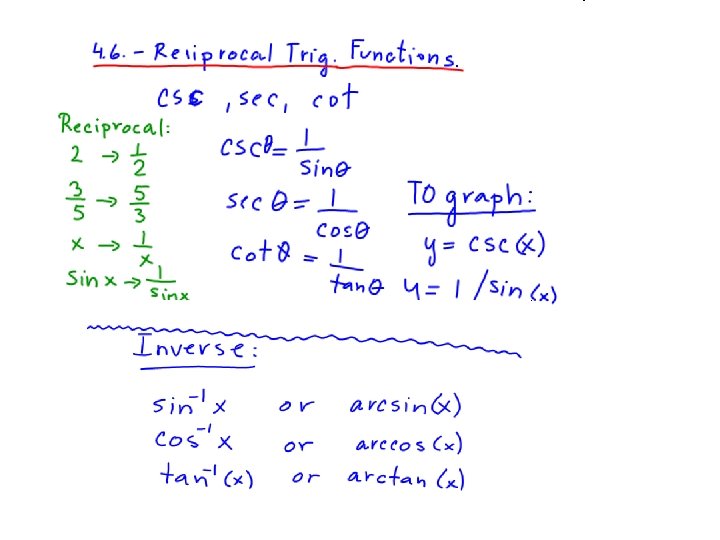 4.6. - Reciprocal Trig. Functions.
csc, sec, cot
Reciprocal:
2 → 1/2
3/5 → 5/3
x → 1/x
sin x → 1/sinx
cscθ = 1/sinθ
sec θ = 1/cosθ
cot θ = 1/tanθ
TO graph:
y = csc(x)
y = 1/sin(x)
Inverse:
sin⁻¹ x or arcsin(x)
cos⁻¹ x or arccos(x)
tan⁻¹(x) or arctan(x)